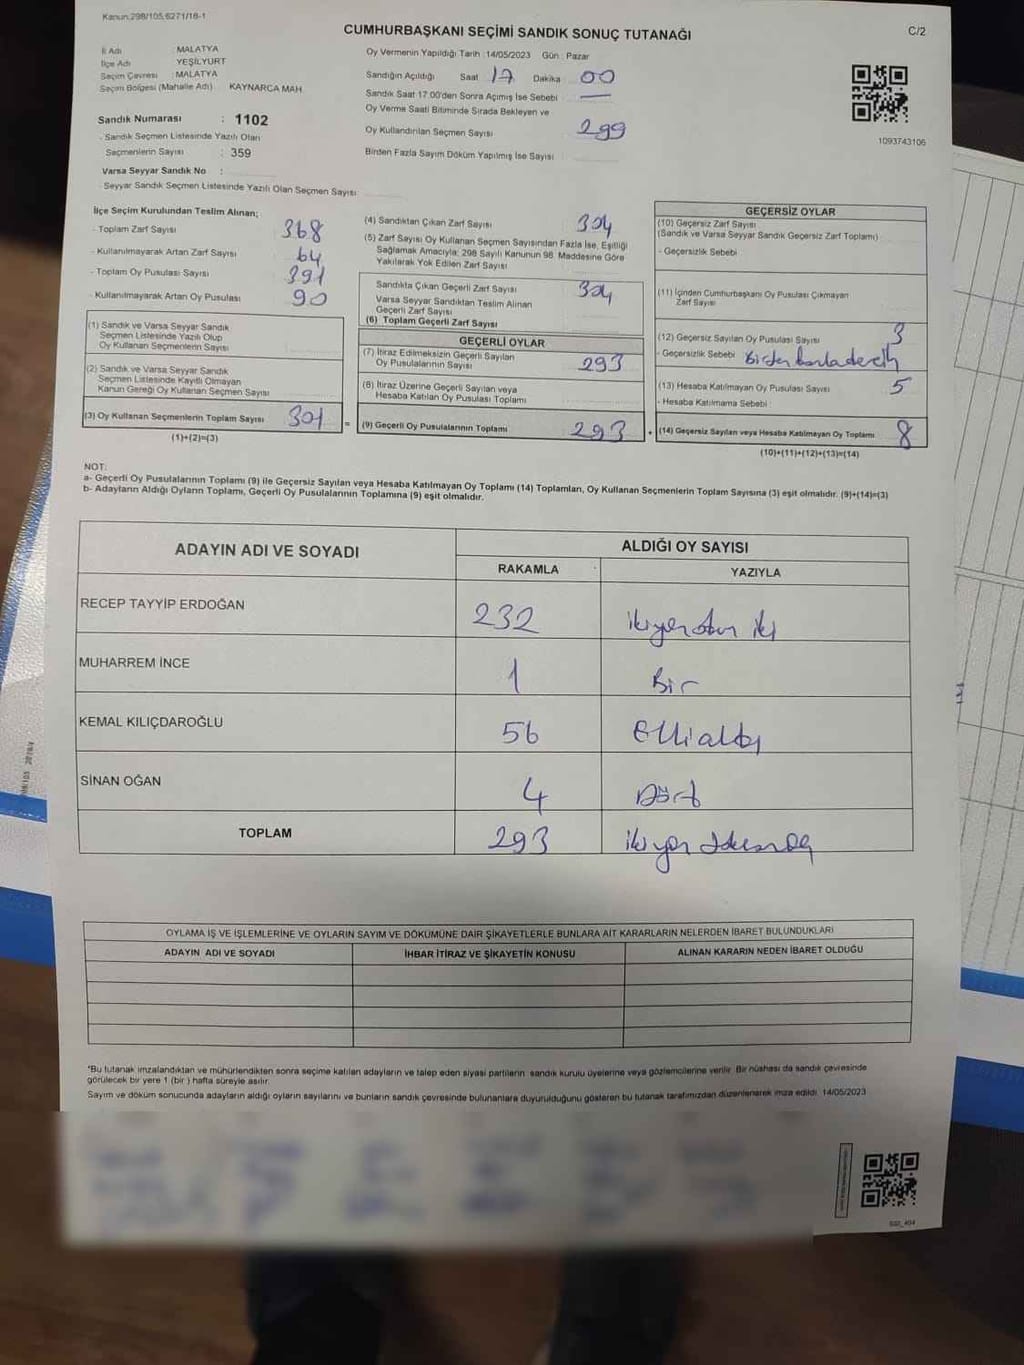 Kanun:298/105,6271/18-1
CUMHURBAŞKANI SEÇİMİ SANDIK SONUÇ TUTANAĞI
C/2
İl Adı : MALATYA
İlçe Adı : YEŞİLYURT
Seçim Çevresi : MALATYA
Seçim Bölgesi (Mahalle Adı) : KAYNARCA MAH.
Sandık Numarası : 1102
- Sandık Seçmen Listesinde Yazılı Olan
Seçmenlerin Sayısı : 359
Varsa Seyyar Sandık No :
- Seyyar Sandık Seçmen Listesinde Yazılı Olan Seçmen Sayısı
Oy Vermenin Yapıldığı Tarih :14/05/2023 Gün : Pazar
Sandığın Açıldığı Saat 17 Dakika 00
Sandık Saat 17:00'den Sonra Açımış İse Sebebi —
Oy Verme Saati Bitiminde Sırada Bekleyen ve
Oy Kullandırılan Seçmen Sayısı 299
Birden Fazla Sayım Döküm Yapılmış İse Sayısı
1093743106
İlçe Seçim Kurulundan Teslim Alınan;
- Toplam Zarf Sayısı 368
- Kullanılmayarak Artan Zarf Sayısı 64
- Toplam Oy Pusulası Sayısı 391
- Kullanılmayarak Artan Oy Pusulası 90
(1) Sandık ve Varsa Seyyar Sandık
Seçmen Listesinde Yazılı Olup
Oy Kullanan Seçmenlerin Sayısı
(2) Sandık ve Varsa Seyyar Sandık
Seçmen Listesinde Kayıtlı Olmayan
Kanun Gereği Oy Kullanan Seçmen Sayısı
(3) Oy Kullanan Seçmenlerin Toplam Sayısı 301 =
(1)+(2)=(3)
(4) Sandıktan Çıkan Zarf Sayısı 304
(5) Zarf Sayısı Oy Kullanan Seçmen Sayısından Fazla İse, Eşitliği
Sağlamak Amacıyla; 298 Sayılı Kanunun 98. Maddesine Göre
Yakılarak Yok Edilen Zarf Sayısı
Sandıkta Çıkan Geçerli Zarf Sayısı 304
Varsa Seyyar Sandıktan Teslim Alınan
Geçerli Zarf Sayısı
(6) Toplam Geçerli Zarf Sayısı
GEÇERLİ OYLAR
(7) İtiraz Edilmeksizin Geçerli Sayılan
Oy Pusulalarının Sayısı 293
(8) İtiraz Üzerine Geçerli Sayılan veya
Hesaba Katılan Oy Pusulası Toplamı
(9) Geçerli Oy Pusulalarının Toplamı 293 +
GEÇERSİZ OYLAR
(10) Geçersiz Zarf Sayısı
(Sandık ve Varsa Seyyar Sandık Geçersiz Zarf Toplamı)
- Geçersizlik Sebebi
(11) İçinden Cumhurbaşkanı Oy Pusulası Çıkmayan
Zarf Sayısı
(12) Geçersiz Sayılan Oy Pusulası Sayısı 3
- Geçersizlik Sebebi
(13) Hesaba Katılmayan Oy Pusulası Sayısı 5
- Hesaba Katılmama Sebebi :
(14) Geçersiz Sayılan veya Hesaba Katılmayan Oy Toplamı 8
(10)+(11)+(12)+(13)=(14)
NOT:
a- Geçerli Oy Pusulalarının Toplamı (9) ile Geçersiz Sayılan veya Hesaba Katılmayan Oy Toplamı (14) Toplamları, Oy Kullanan Seçmenlerin Toplam Sayısına (3) eşit olmalıdır. (9)+(14)=(3)
b- Adayların Aldığı Oyların Toplamı, Geçerli Oy Pusulalarının Toplamına (9) eşit olmalıdır.
ADAYIN ADI VE SOYADI ALDIĞI OY SAYISI
RAKAMLA YAZIYLA
RECEP TAYYİP ERDOĞAN 232 ikiyüz otuz iki
MUHARREM İNCE 1 Bir
KEMAL KILIÇDAROĞLU 56 Ellialtı
SİNAN OĞAN 4 Dört
TOPLAM 293
OYLAMA İŞ VE İŞLEMLERİNE VE OYLARIN SAYIM VE DÖKÜMÜNE DAİR ŞİKAYETLERLE BUNLARA AİT KARARLARIN NELERDEN İBARET BULUNDUKLARI
ADAYIN ADI VE SOYADI İHBAR İTİRAZ VE ŞİKAYETİN KONUSU ALINAN KARARIN NEDEN İBARET OLDUĞU
"Bu tutanak imzalandıktan ve mühürlendikten sonra seçime katılan adayların ve talep eden siyasi partilerin sandık kurulu üyelerine veya gözlemcilerine verilir. Bir nüshası da sandık çevresinde
görülecek bir yere 1 (bir) hafta süreyle asılır.
Sayım ve döküm sonucunda adayların aldığı oyların sayılarını ve bunların sandık çevresinde bulunanlara duyurulduğunu gösteren bu tutanak tarafımızdan düzenlenerek imza edildi. 14/05/2023